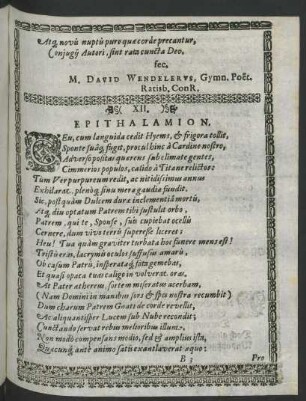 Atq; novū nuptū puro quæ corde precantur,
Conjugij Autori, sint rata cuncta Deo.
fec.
M. DAVID WENDELERVS, Gymn. Poët.
Ratisb. ConR.
XII.
EPITHALAMION.
CEu, cum languida cedit Hyems, & frigora tollit,
Sponte suâq; fugit, procul hinc à Cardine nostro,
Adverso positas quærens sub climate gentes,
Cimmerios populos, calido à Titane relictos:
Tum Ver purpureum redit, ac nitidissimus annus
Exhilarat, plenoq; sinu mera gaudia fundit.
Sic, postquàm Dulcem dura inclementiâ mortis,
Atq; diu optatum Patrem tibi sustulit orbo,
Patrem, qui te, Sponse, sui cupiebat ocellû
Cernere, dum vivo terris superesse liceret:
Heu! Tua quàm graviter turbata hoc funere mens est!
Tristis eras, lacrymis oculos suffusus amaris,
Ob casum Patris, insperataq; fata gemebas,
Et quasi opaca tuas caligo involverat oras.
At Pater atherem, sortem miseratus acerbam,
(Nam Domini in manibus sors & spes nostra recumbit)
Dum charum Patrem Gnato de corde revellit,
At aliquantisper Lucem sub Nube recondit;
Cunctando servat rebus melioribus illunc,
Non modò compensans medio, sed & amplius istu,
Quæcunq; ante animo satis exantlaverat æquo:
B 3
Pro